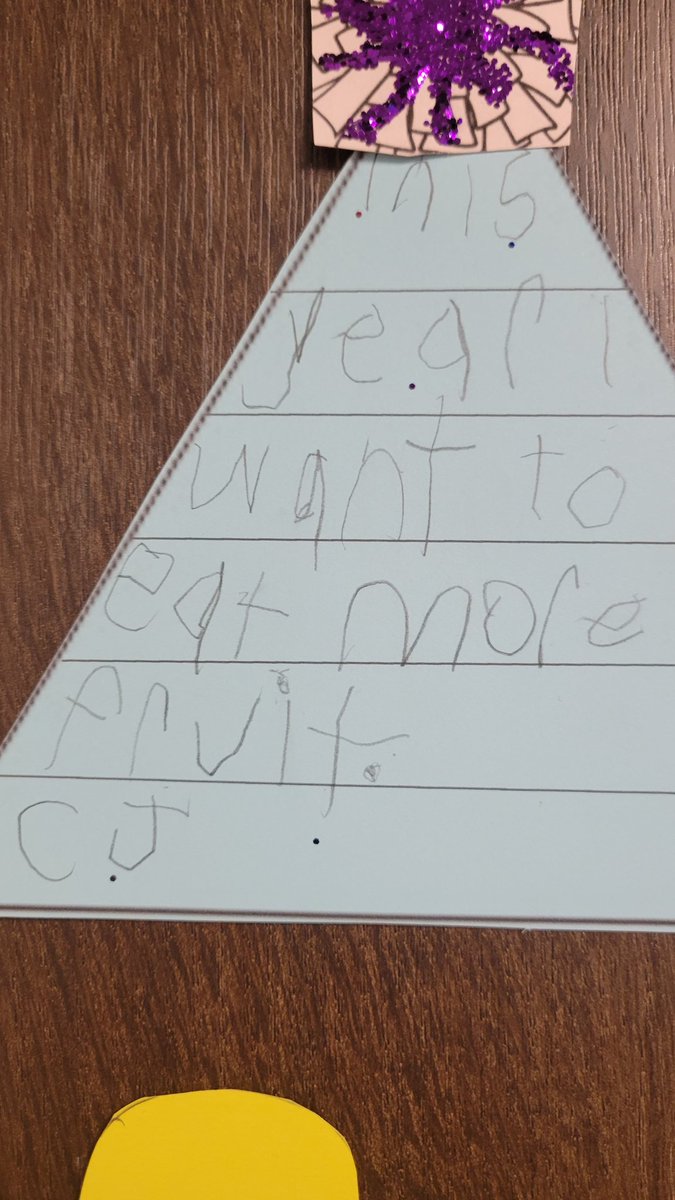 This
year I
want to
eat more
fruit.
CJ